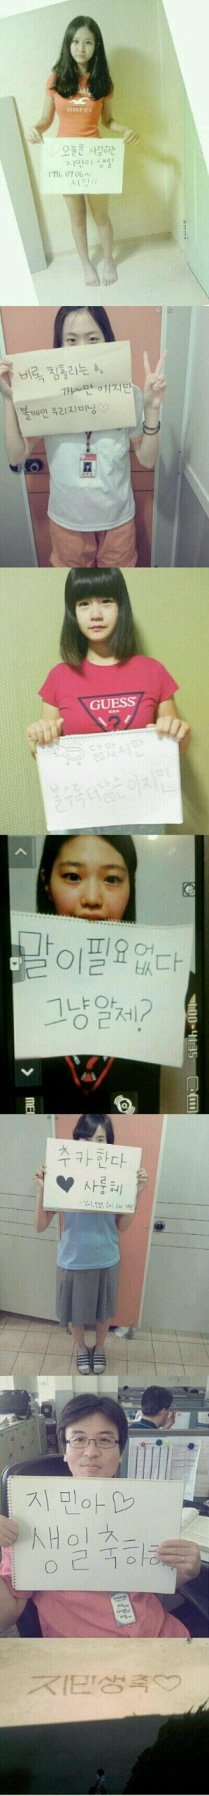 오늘은 사랑하는
지민이 생일
1996.09.06~
사진!!
비록 침흘리는
까~만 애지만
볼매인 우리지미닝♡
GUESS
USA
?
닮았지만
볼수록 더 닮은 이지민
말이필요없다
그냥알제?
추카한다
♥ 사룽헤
지민아♡
생일축하해
지민생축♡